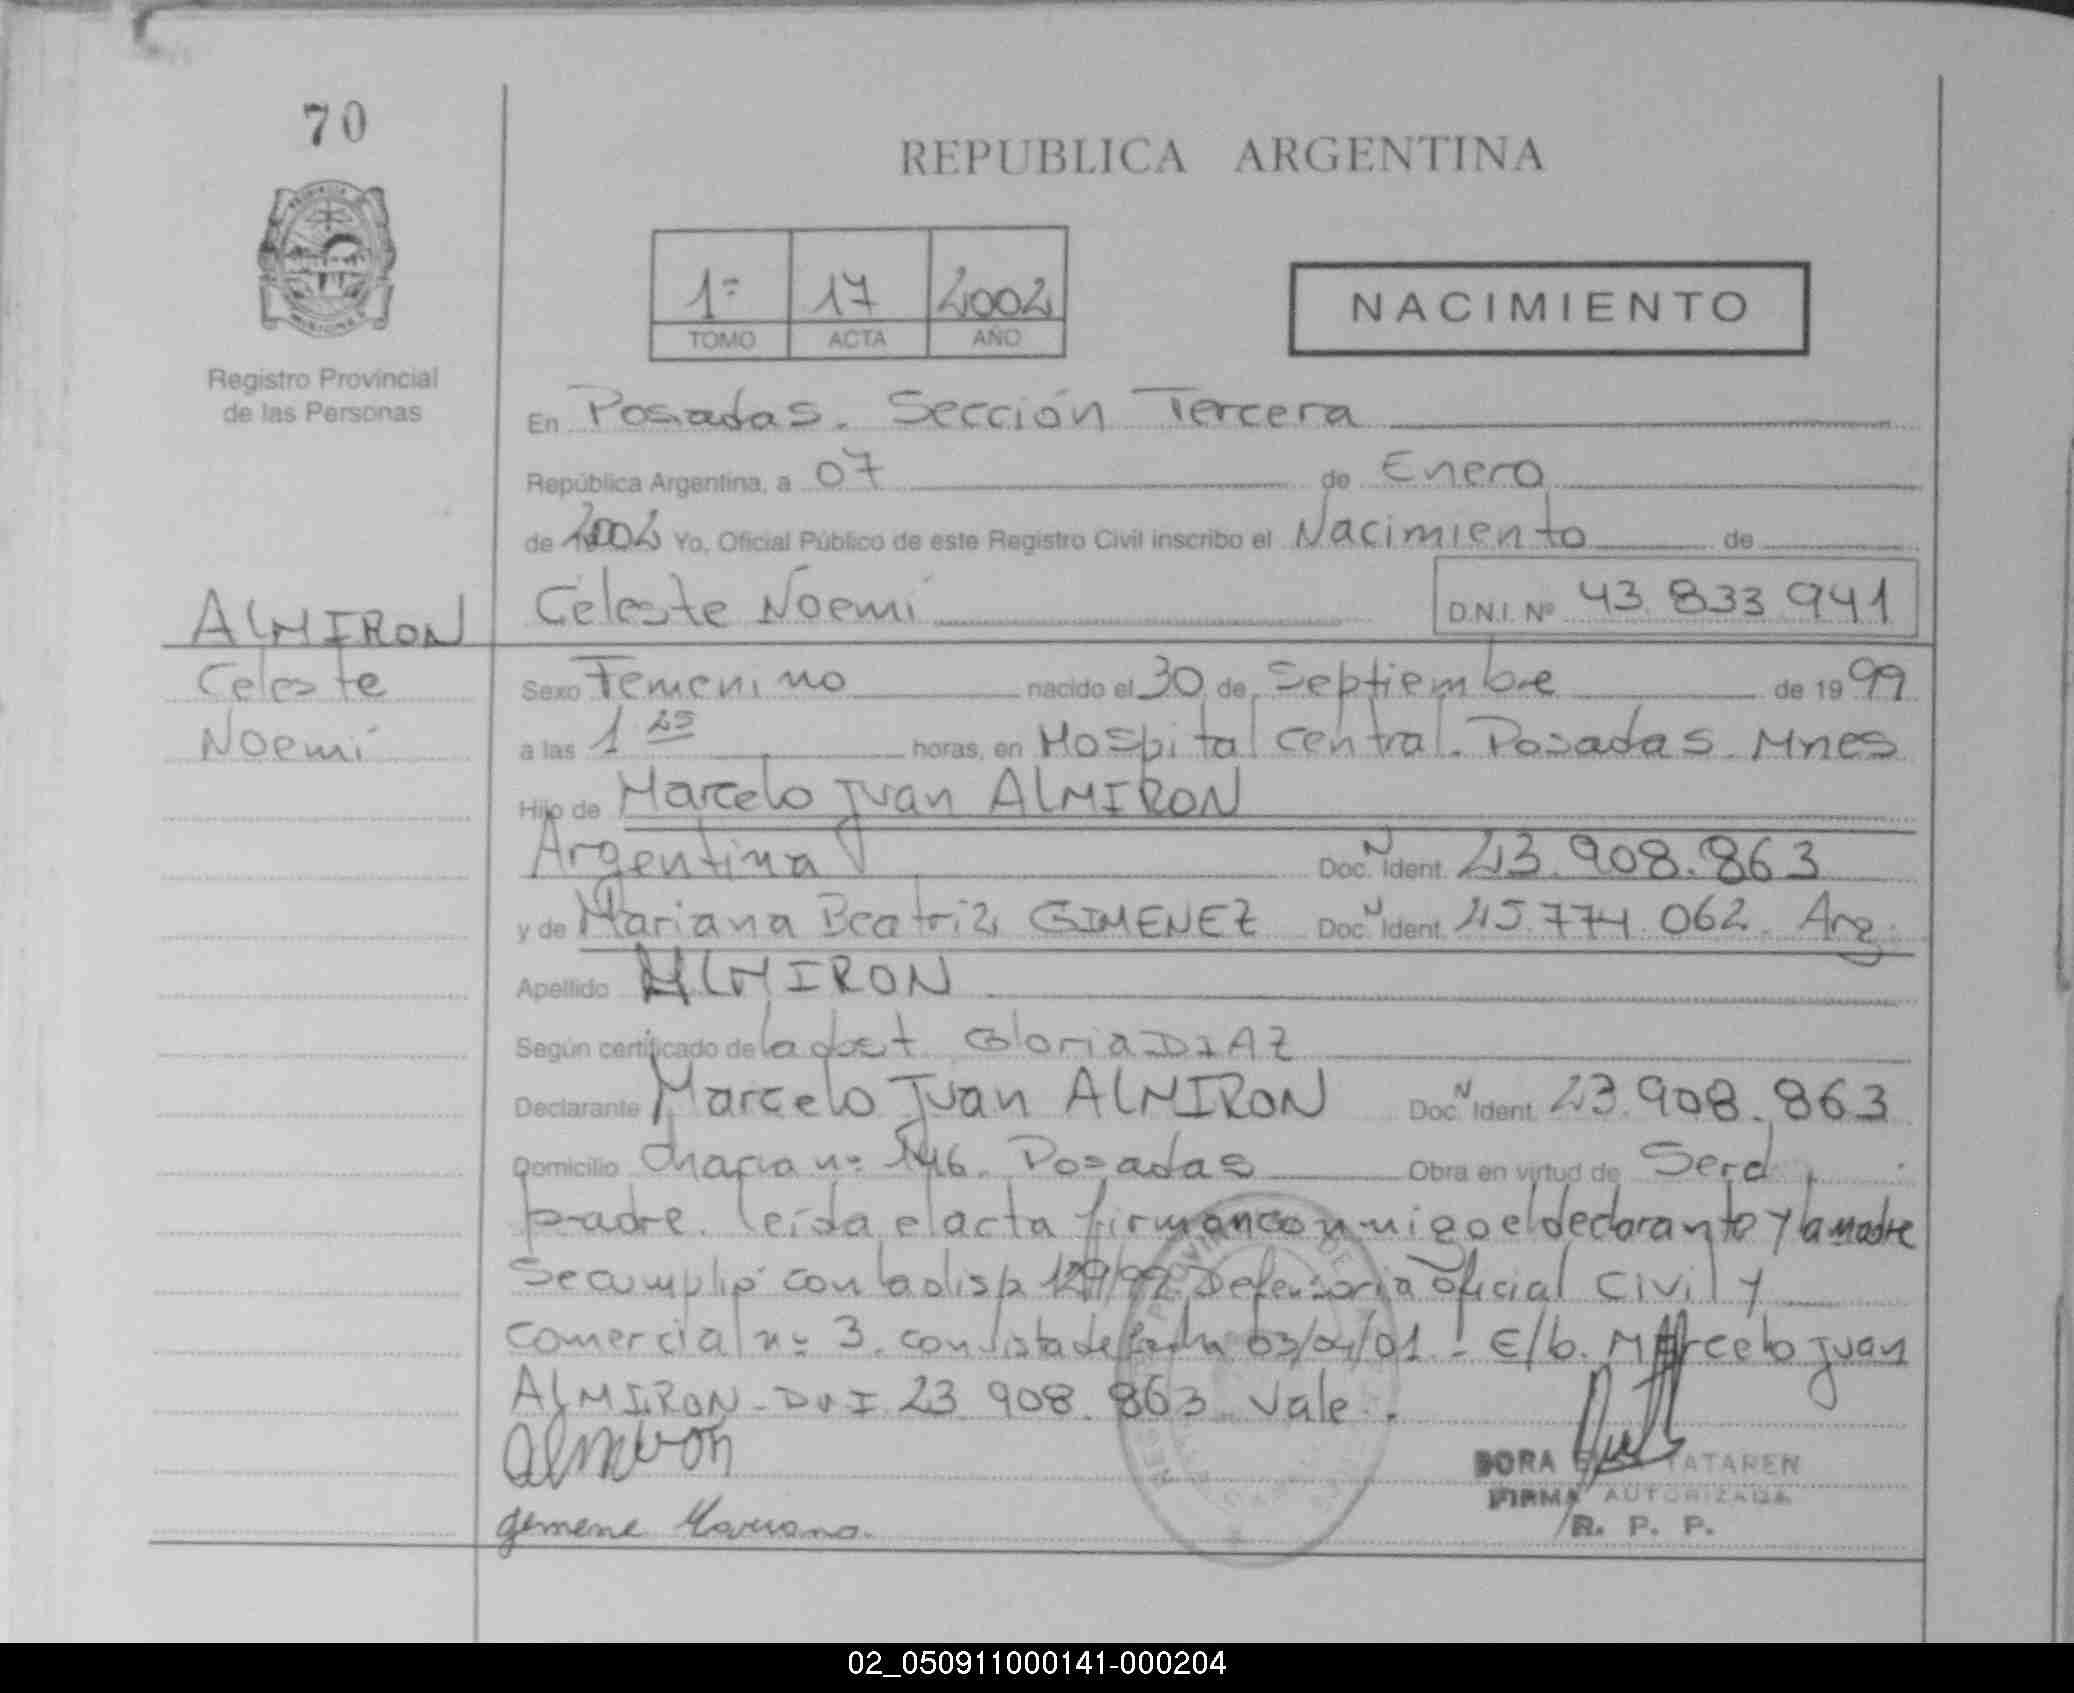 70
REPUBLICA ARGENTINA
1º 17 2002
TOMO ACTA AÑO
NACIMIENTO
Registro Provincial
de las Personas
En Posadas. Sección Tercera
República Argentina, a 07 de Enero
de 2002 Yo, Oficial Público de este Registro Civil inscribo el Nacimiento de
Celeste Noemí D.N.I. Nº 43.833.941
ALMIRON
Celeste
Noemí
Sexo Femenino nacido el 30 de Septiembre de 1999
a las 1 25 horas, en Hospital Central. Posadas. Mnes
Hijo de Marcelo Juan ALMIRON
Argentina Doc. N Ident. 23.908.863
y de Mariana Beatriz GIMENEZ Doc. N Ident. 25.774.062. Arg.
Apellido ALMIRON
Según certificado de la obst. Gloria DIAZ
Declarante Marcelo Juan ALMIRON Doc. N Ident. 23.908.863
Domicilio Chacra nº 146. Posadas Obra en virtud de Ser el
padre. leída el acta firman conmigo el declarante y la madre
Se cumplió con la disp 129/99 Defensoria Oficial Civil y
Comercial nº 3. con vista de fecha 03/04/01. E/b. Marcelo Juan
ALMIRON - DNI 23.908.863 Vale.
Almiron
Gimene Mariana.
DORA TATAREN
FIRMA AUTORIZADA
R. P. P.
02_050911000141-000204